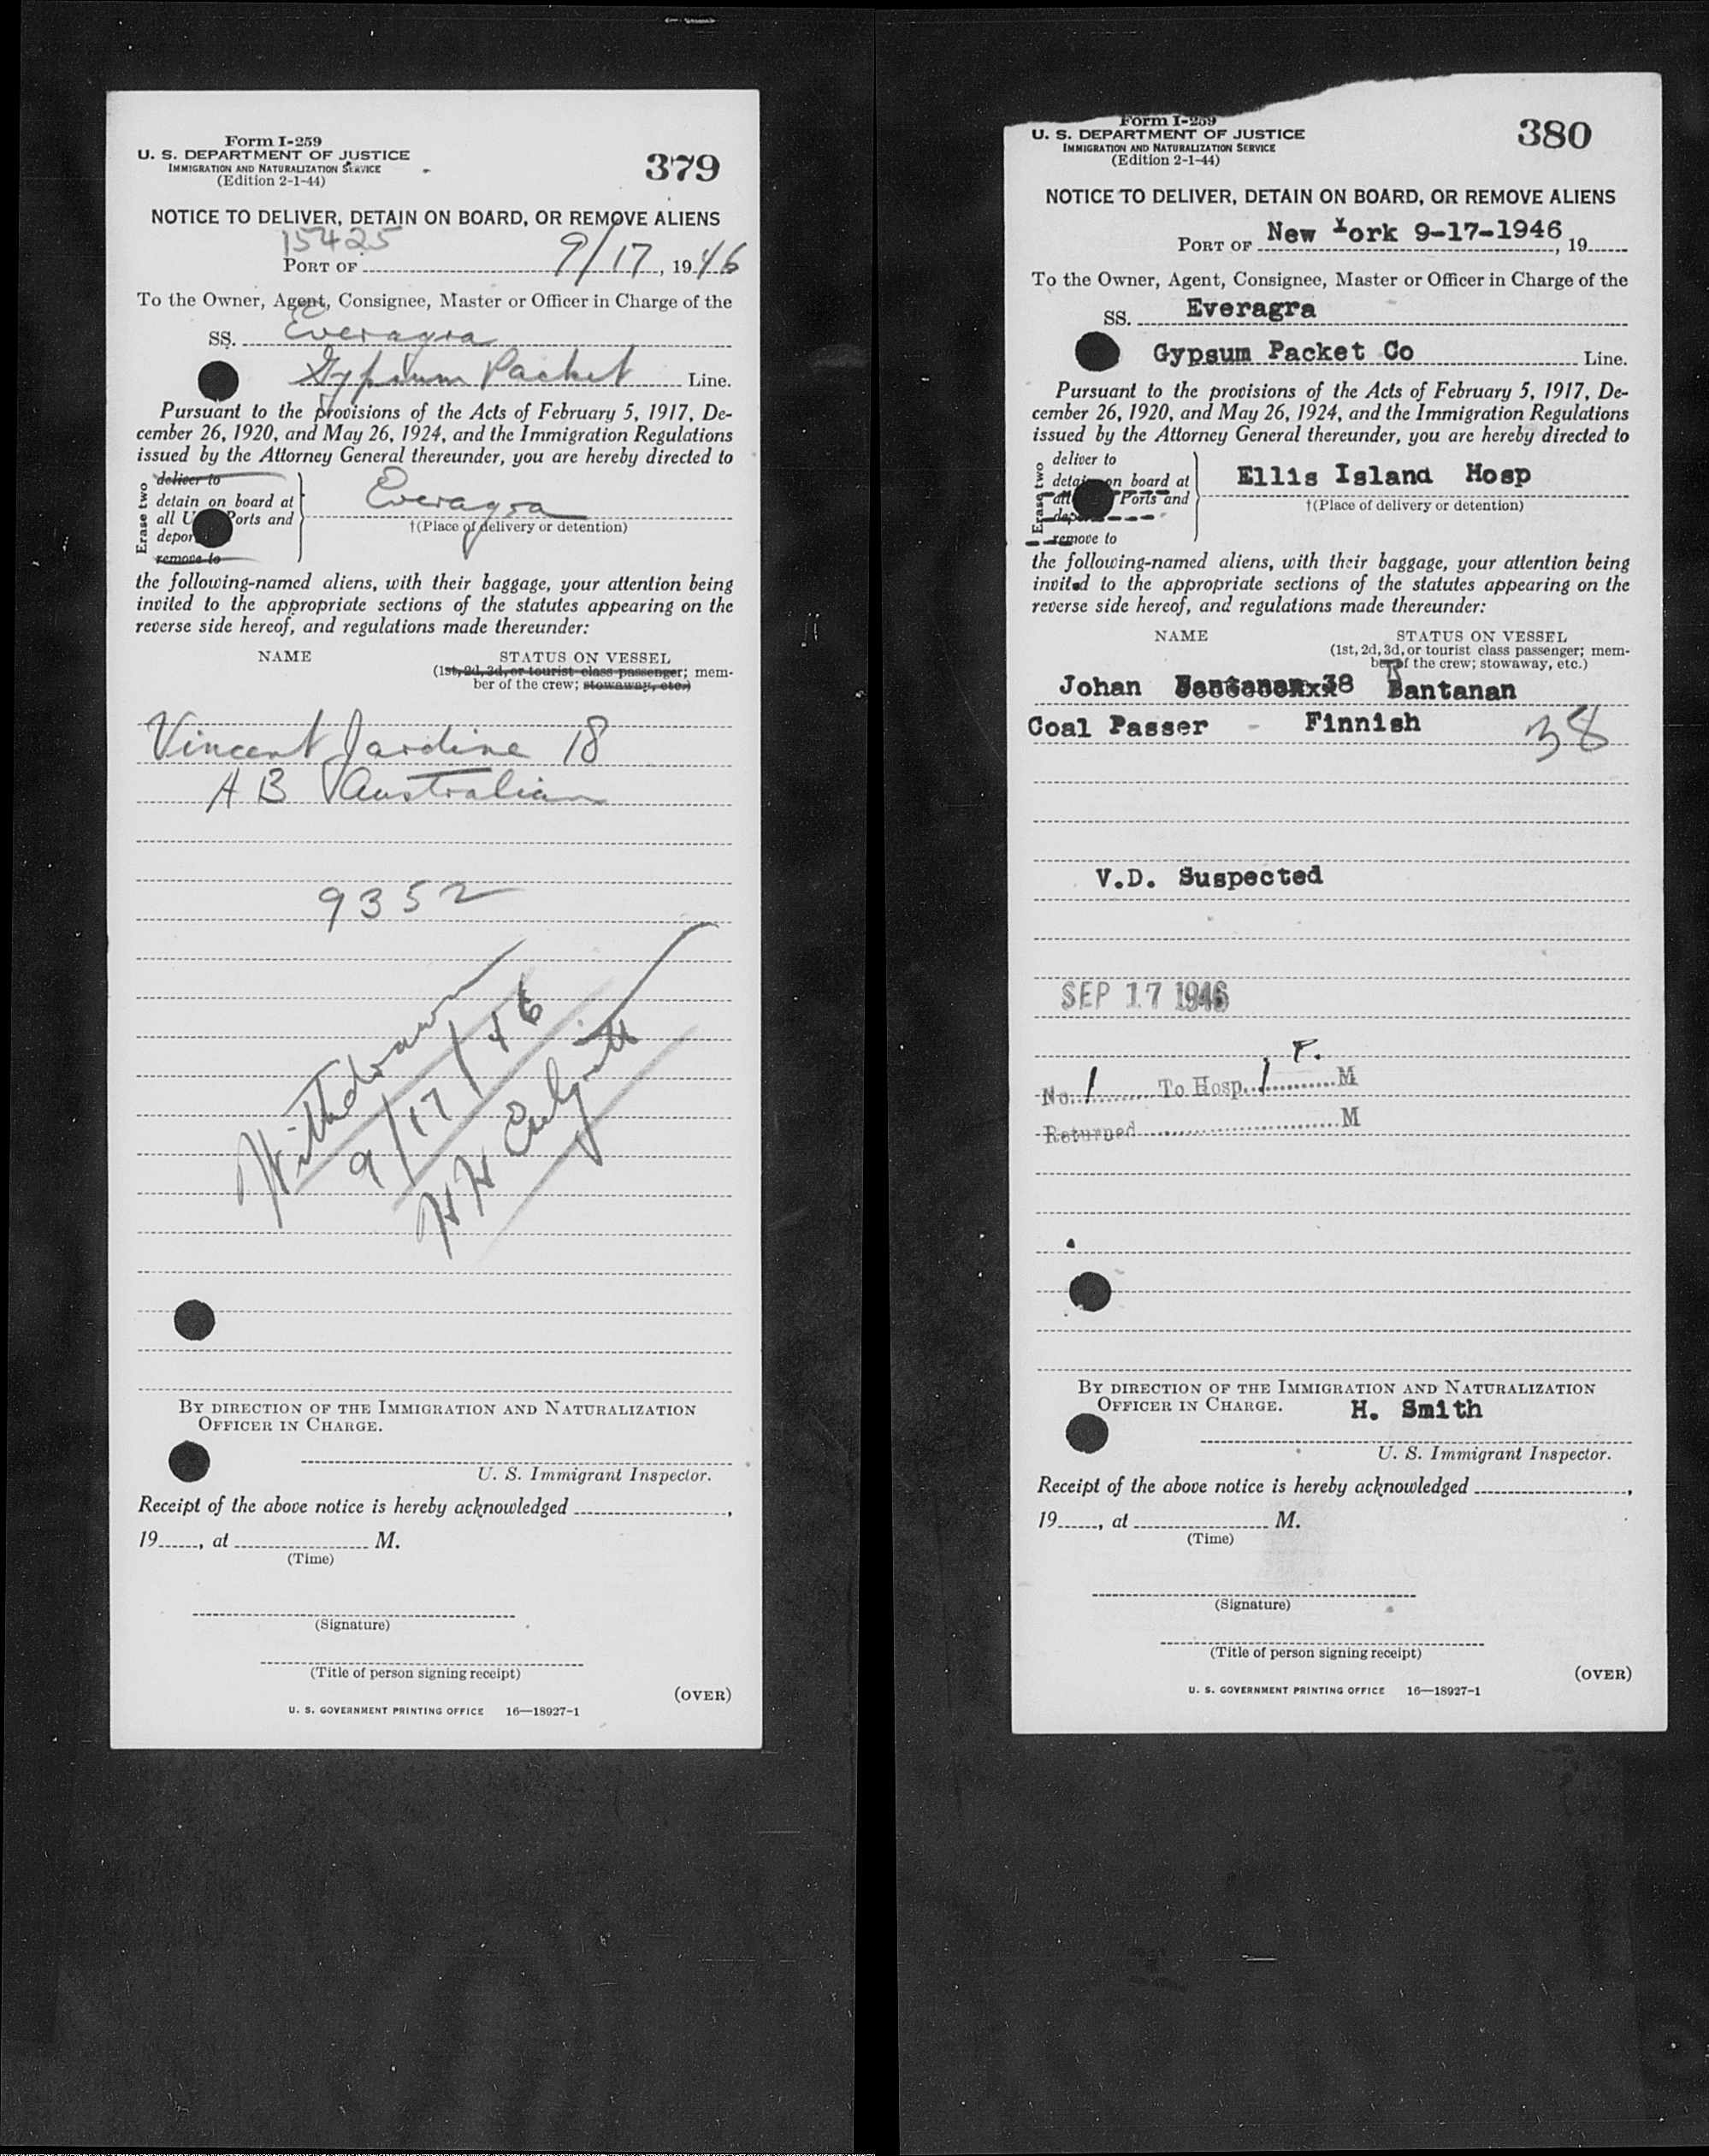 Form I-259
U. S. DEPARTMENT OF JUSTICE
IMMIGRATION AND NATURALIZATION SERVICE
(Edition 2-1-44)
379
NOTICE TO DELIVER, DETAIN ON BOARD, OR REMOVE ALIENS
15425
PORT OF 9/17, 1946
To the Owner, Agent, Consignee, Master or Officer in Charge of the
SS. Everagra
Gypsum Packet Line.
Pursuant to the provisions of the Acts of February 5, 1917, De-
cember 26, 1920, and May 26, 1924, and the Immigration Regulations
issued by the Attorney General thereunder, you are hereby directed to
Erase two
deliver to
detain on board at
all U Ports and
depor
remove to
Everagra
†(Place of delivery or detention)
the following-named aliens, with their baggage, your attention being
invited to the appropriate sections of the statutes appearing on the
reverse side hereof, and regulations made thereunder:
NAME STATUS ON VESSEL
(1st, 2d, 3d, or tourist class passenger; mem-
ber of the crew; stowaway, etc.)
Vincent Jardine 18
AB Australian
9352
Withdrawn
9/17/46
U. S. Immigrant Inspector.
BY DIRECTION OF THE IMMIGRATION AND NATURALIZATION
OFFICER IN CHARGE.
Receipt of the above notice is hereby acknowledged ,
19 , at M.
(Time)
(Signature)
(Title of person signing receipt)
(OVER)
U. S. GOVERNMENT PRINTING OFFICE 16—18927-1
Form I-259
U. S. DEPARTMENT OF JUSTICE
IMMIGRATION AND NATURALIZATION SERVICE
(Edition 2-1-44)
380
NOTICE TO DELIVER, DETAIN ON BOARD, OR REMOVE ALIENS
PORT OF New York 9-17-1946, 19
To the Owner, Agent, Consignee, Master or Officer in Charge of the
SS. Everagra
Gypsum Packet Co Line.
Pursuant to the provisions of the Acts of February 5, 1917, De-
cember 26, 1920, and May 26, 1924, and the Immigration Regulations
issued by the Attorney General thereunder, you are hereby directed to
Erase two
deliver to
detain on board at
all Ports and
depo
remove to
Ellis Island Hosp
†(Place of delivery or detention)
the following-named aliens, with their baggage, your attention being
invited to the appropriate sections of the statutes appearing on the
reverse side hereof, and regulations made thereunder:
NAME STATUS ON VESSEL
(1st, 2d, 3d, or tourist class passenger; mem-
ber of the crew; stowaway, etc.)
Johan 38 Bantanan
Coal Passer - Finnish 38
V.D. Suspected
SEP 17 1946
No. 1 To Hosp. 1 P. M
Returned M
BY DIRECTION OF THE IMMIGRATION AND NATURALIZATION
OFFICER IN CHARGE. H. Smith
U. S. Immigrant Inspector.
Receipt of the above notice is hereby acknowledged ,
19 , at M.
(Time)
(Signature)
(Title of person signing receipt)
(OVER)
U. S. GOVERNMENT PRINTING OFFICE 16—18927-1